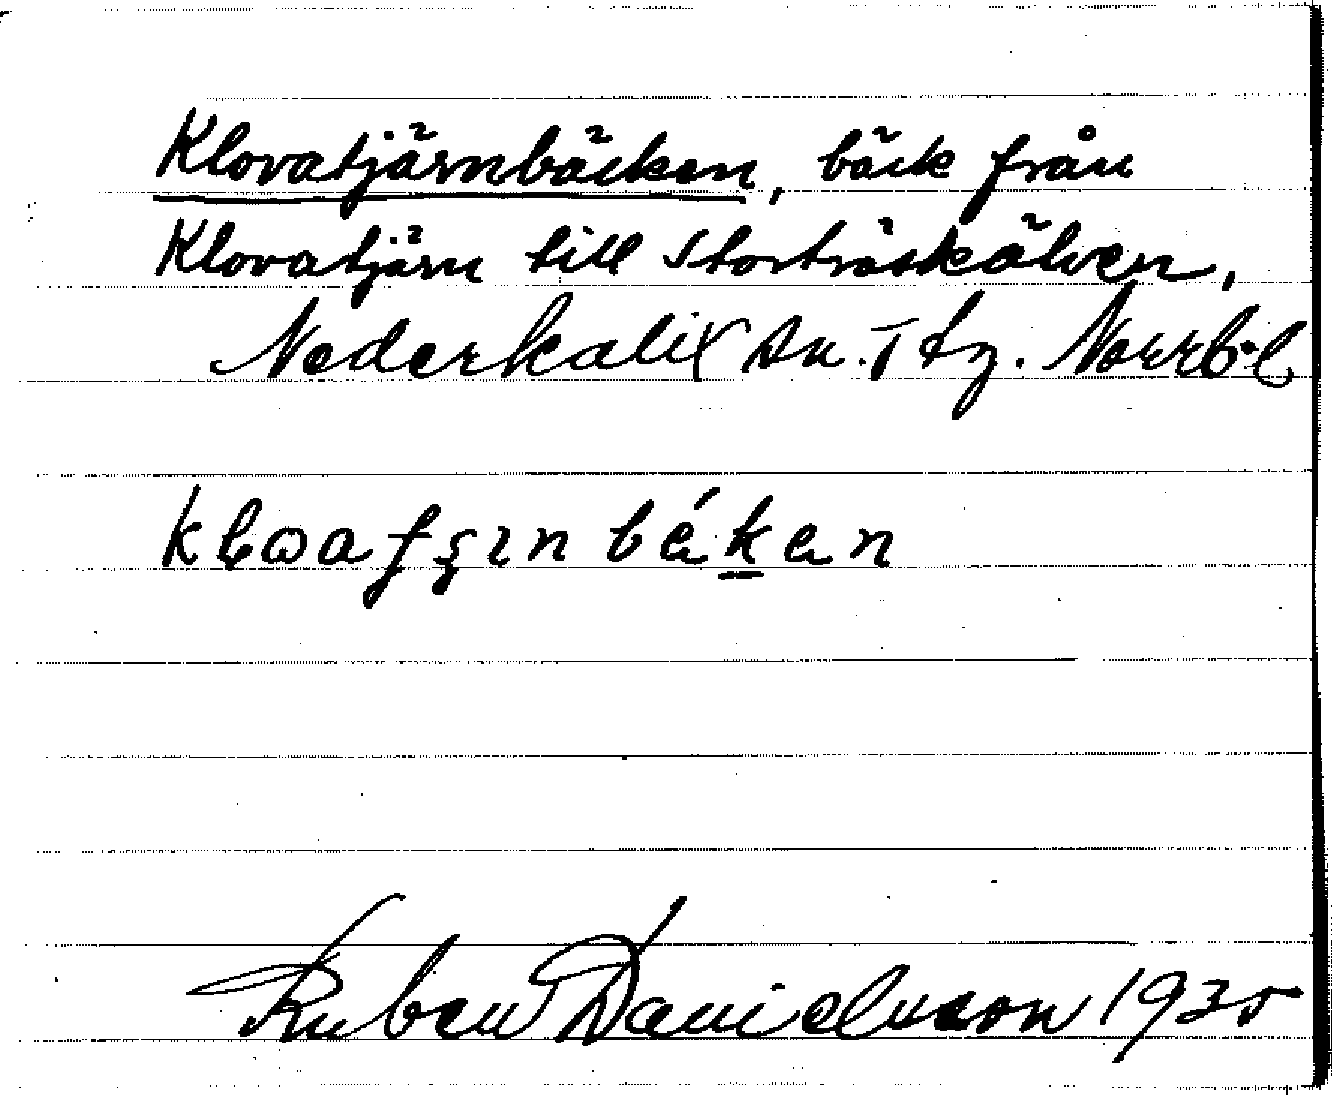 Klovatjärnbäcken, bäck från
Klovatjärn till Storträskälven,
Nederkalix sn. Tfg. Norrb. l
Ruben Danielsson 1935